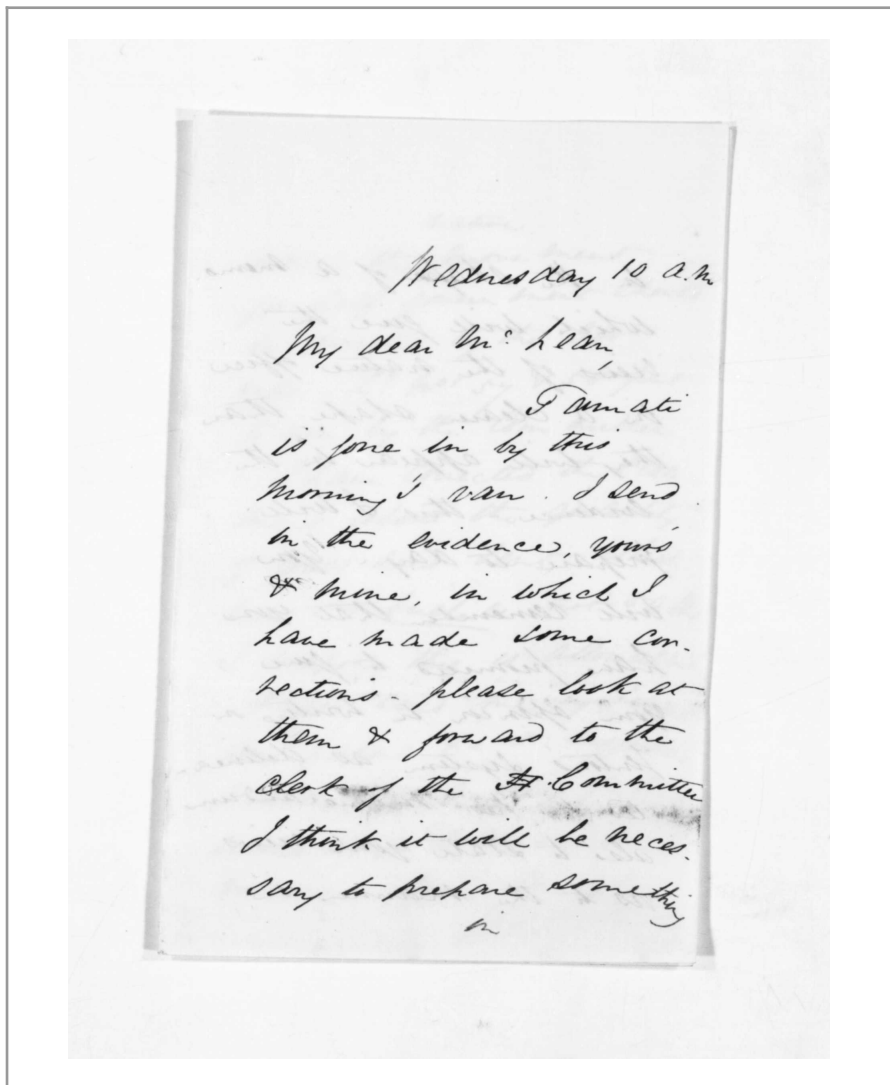 Wednesday 10 a.m
My dear Mc. Lean,
Tamati
is gone in by this
morning's van. I send
in the evidence, yours
& mine, in which I
have made some cor-
rections - please look at
them & forward to the
Clerk of the Committee
I think it will be neces-
sary to prepare something
in